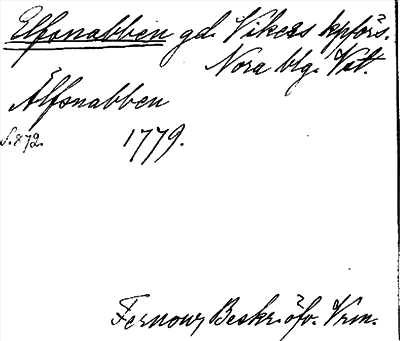 Elfsnabben gd. Vikess kpförs.
Nora blg. Vst.
Älfsnabben
s. 872. 1779.
Fernow, Beskr. öfv. Vrm.